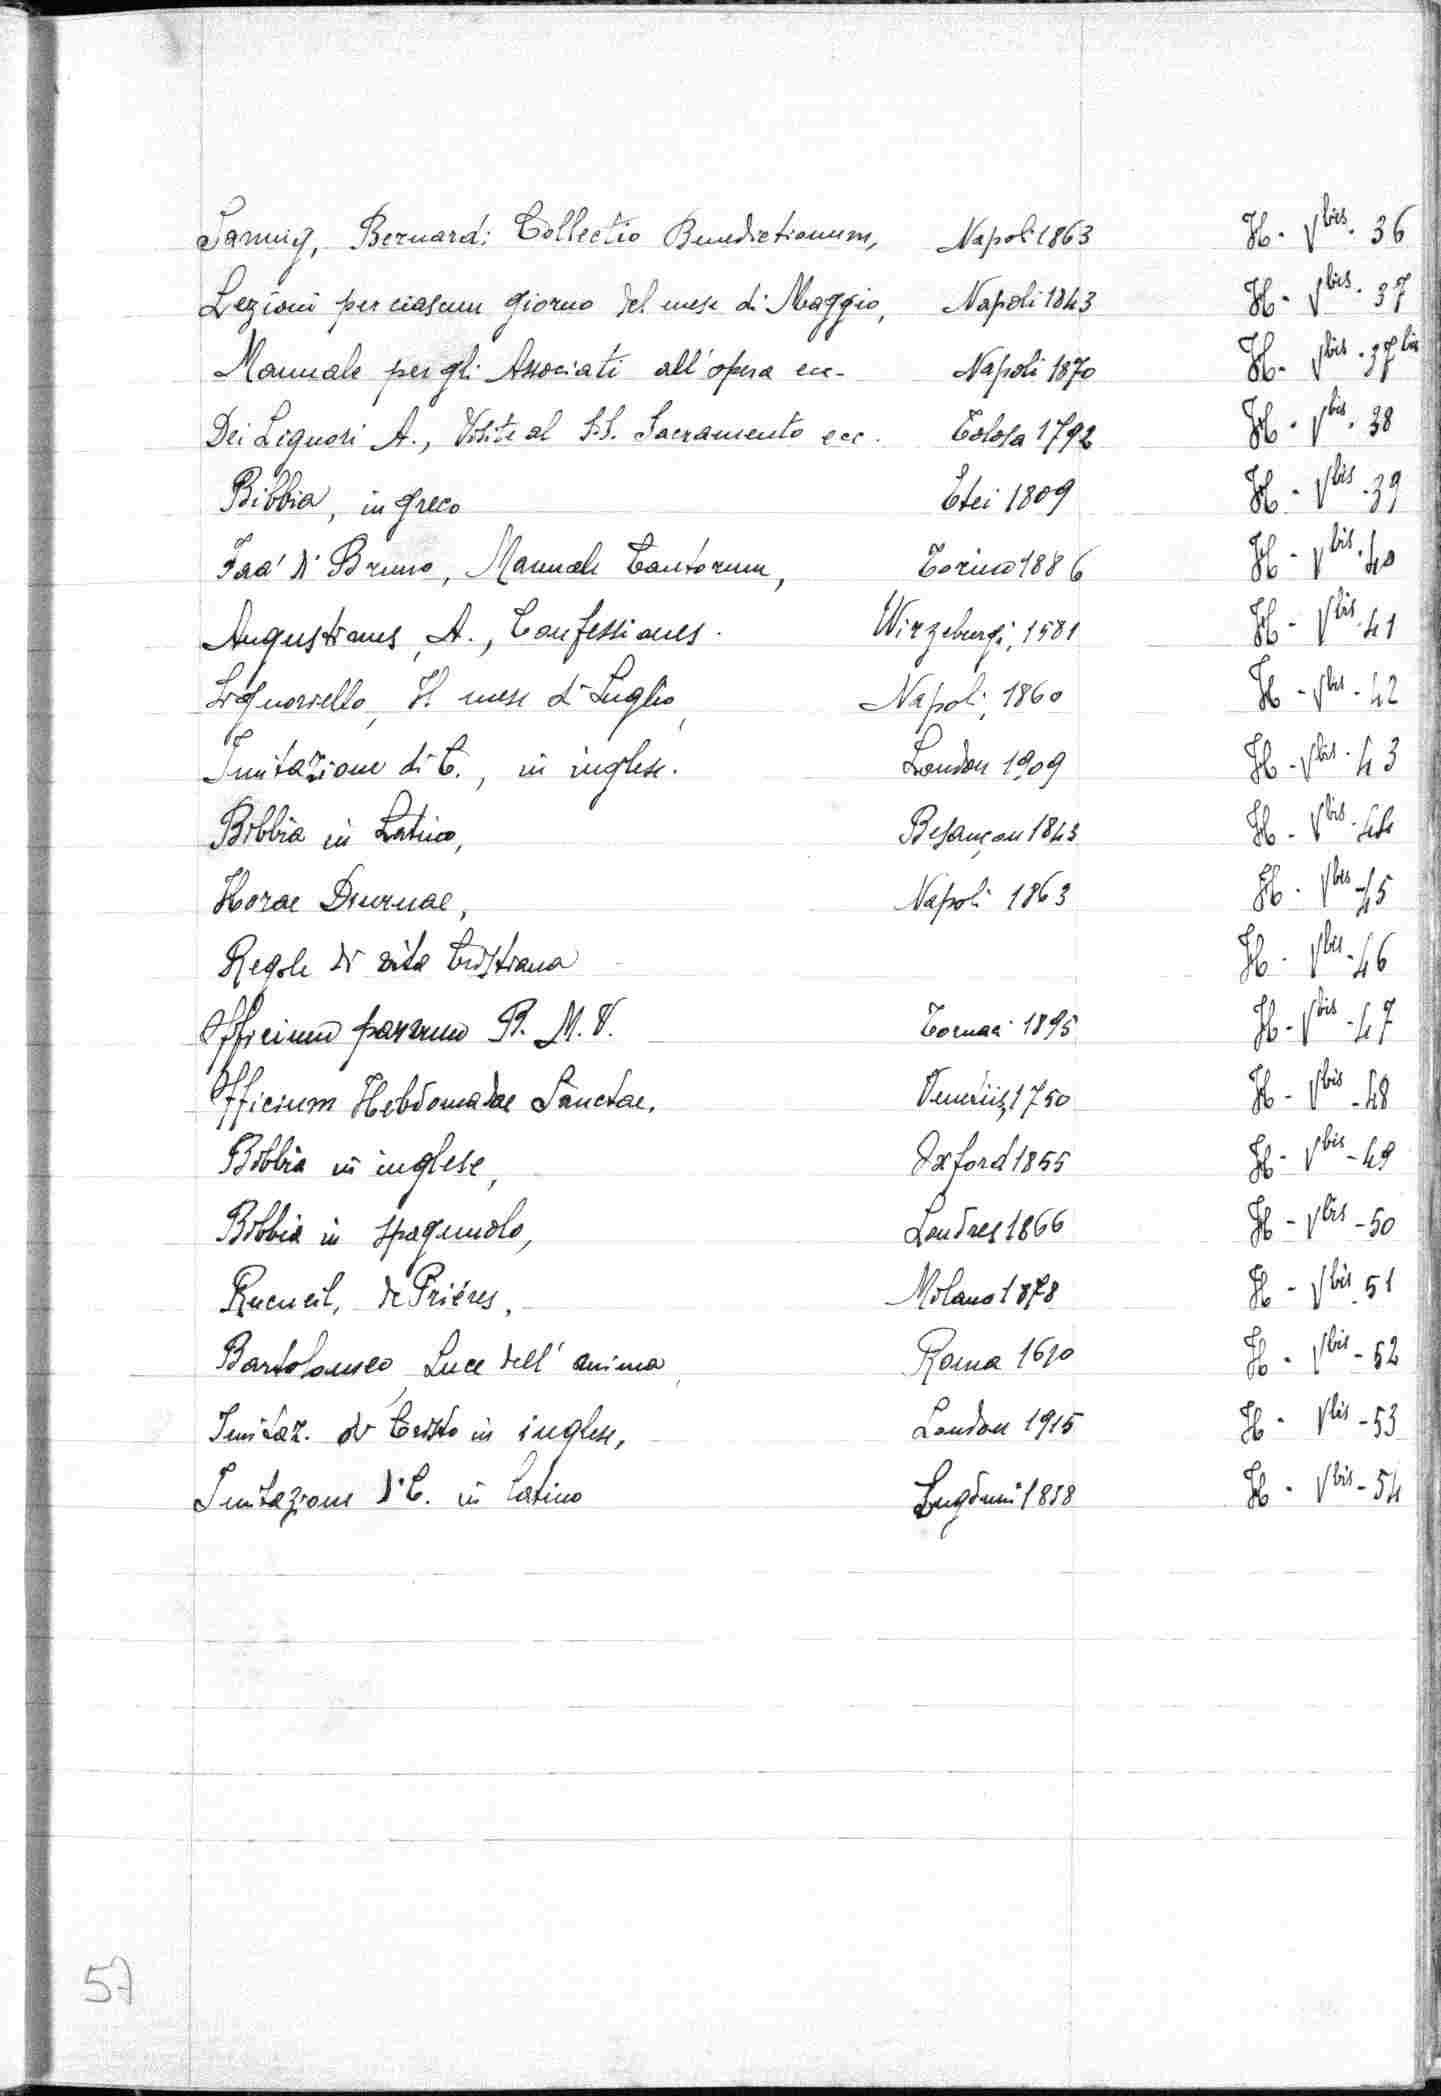 Sannig, Bernardi Collectio Benedictionum, Napoli 1863 H - Vbis - 36
Lezioni per ciascun giorno del mese di Maggio, Napoli 1843 H - Vbis - 37
Manuale per gli Associati all'opera ecc. Napoli 1870 H - Vbis - 37bis
Dei Liguori A., Visite al S.S. Sacramento ecc. Tolosa 1792 H - Vbis - 38
Bibbia, in greco 1809 H - Vbis - 39
Faa' di Bruno, Manuale Cantorum, Torino 1886 H - Vbis - 40
Augustinus, A., Confessiones. Wirzeburgi, 1581 H - Vbis - 41
Il mese di Luglio, Napoli, 1860 H - Vbis - 42
Imitazione di C., in inglese. London 1909 H - Vbis - 43
Bibbia in Latino, Besançon 1843 H - Vbis - 44
Horae Diurnae, Napoli 1863 H - Vbis - 45
Regole di vita Cristiana H - Vbis - 46
Officium parvum B. M. V. Tornaci 1895 H - Vbis - 47
Officium Hebdomadae Sanctae. Venetiis, 1750 H - Vbis - 48
Bibbia in inglese, Oxford 1855 H - Vbis - 49
Bibbia in spagnuolo, Londres 1866 H - Vbis - 50
Recueil, de Prières, Milano 1878 H - Vbis - 51
Bartolomeo, Luce dell'anima, Roma H - Vbis - 52
Imitaz. di Cristo in inglese, London 1915 H - Vbis - 53
Imitazione di C. in latino Lugduni 1858 H - Vbis - 54
57